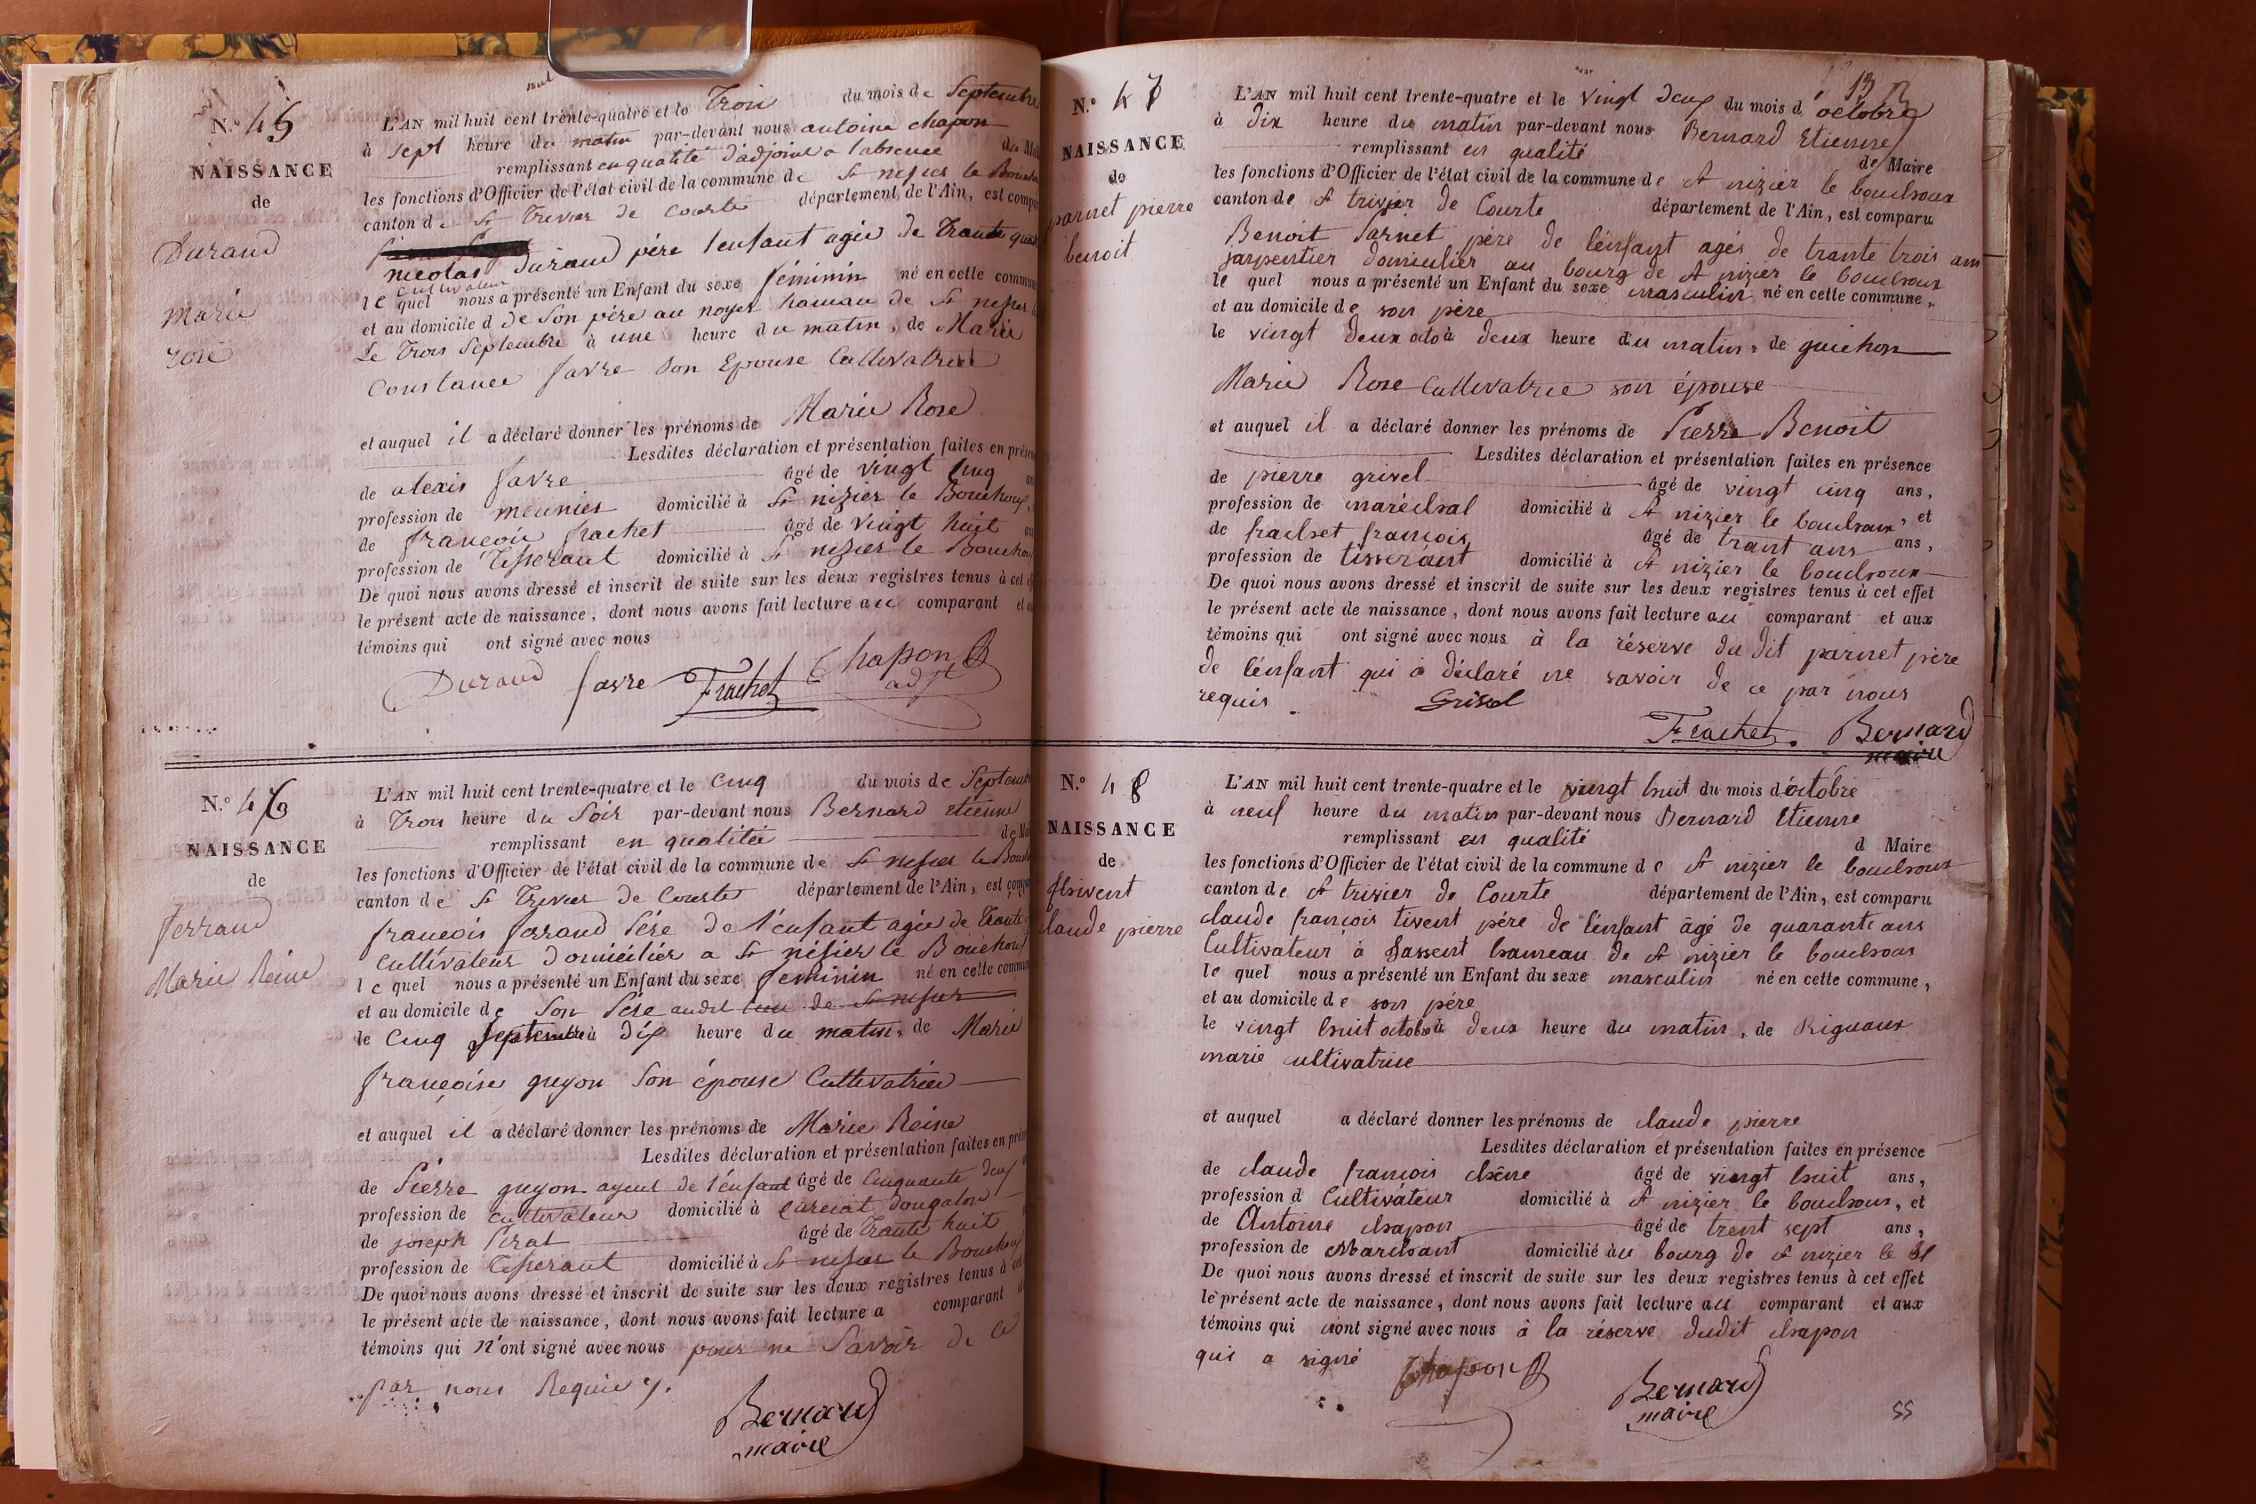 N.° 45
NAISSANCE
de
Durand
Marie
rose
L'AN mil huit cent trente-quatre et le Trois du mois de Septembre
à sept heure du matin par-devant nous antoine chapon
remplissant en qualité d'adjoint a l'absence du
les fonctions d'Officier de l'état civil de la commune de St nisier le
canton de St Trivier de Courte département de l'Ain, est
nicolas Durand père l'enfant agée de Trante
cultivateur
le quel nous a présenté un Enfant du sexe féminin né en cette
et au domicile d de son père au noyer hameau de St nisier
Le Trois Septembre à une heure du matin, de Marie
Constance favre son Epouse Cultivatrice
et auquel il a déclaré donner les prénoms de Marie Rose
Lesdites déclaration et présentation faites en
de alexis favre âgé de vingt cinq
profession de meunier domicilié à St nizier le Bouchoux,
de francois frachet âgé de vingt huit
profession de Tisserant domicilié à St nizier le
De quoi nous avons dressé et inscrit de suite sur les deux registres tenus à cet
le présent acte de naissance, dont nous avons fait lecture au comparant et
témoins qui ont signé avec nous
Durand favre Frachet Chapon
adjt
N.° 46
NAISSANCE
de
ferrand
Marie Reine
L'AN mil huit cent trente-quatre et le cinq du mois de
à Trois heure du Soir par-devant nous Bernard etienne
remplissant en qualitée de
les fonctions d'Officier de l'état civil de la commune de St nisier le
canton de St Trivier de Courte département de l'Ain, est
francois ferrand Père de l'enfant agée de Trante
Cultivateur domicilier a St nisier le Bouchoux
le quel nous a présenté un Enfant du sexe feminin né en cette
et au domicile de Son Père audit lieu de St nisier
le Cinq Septembre à dix heure du matin, de Marie
françoise guyon Son épouse Cultivatrice
et auquel il a déclaré donner les prénoms de Marie Reine
Lesdites déclaration et présentation faites en
de Pierre guyon ayeul de l'enfant âgé de Cinquante deux
profession de cultivateur domicilié à Curciat dongalon
de joseph Pirat âgé de Trante huit
profession de Tisserant domicilié à St nisier le Bouchoux
De quoi nous avons dressé et inscrit de suite sur les deux registres tenus à
le présent acte de naissance, dont nous avons fait lecture a comparant
témoins qui n'ont signé avec nous pour ne Savoir de ce
par nous Requis
Bernard
maire
13
N.° 47
NAISSANCE
de
parnet pierre
benoit
L'AN mil huit cent trente-quatre et le vingt deux du mois d'octobre
à dix heure du matin par-devant nous Bernard Etienne
remplissant en qualité de Maire
les fonctions d'Officier de l'état civil de la commune de St nizier le bouchoux
canton de St trivier de Courte département de l'Ain, est comparu
Benoit Parnet père de l'énfant agés de trante trois ans
jarpentier domiculier au bourg de St nizier le bouchoux
le quel nous a présenté un Enfant du sexe masculin né en cette commune,
et au domicile de son père
le vingt deux octo à deux heure du matin, de guichon
Marie Rose Cultivatrice son épouse
et auquel il a déclaré donner les prénoms de Pierre Benoit
Lesdites déclaration et présentation faites en présence
de pierre grivel âgé de vingt cinq ans,
profession de maréchal domicilié à St nizier le bouchoux, et
de frachet françois âgé de trant ans ans,
profession de tisserant domicilié à St nizier le bouchoux
De quoi nous avons dressé et inscrit de suite sur les deux registres tenus à cet effet
le présent acte de naissance, dont nous avons fait lecture au comparant et aux
témoins qui ont signé avec nous à la réserve du dit parnet père
de l'énfant qui a déclaré ne savoir de ce par nous
requis. Grivel
Frachet. Bernard
maire
N.° 48
NAISSANCE
de
claude pierre
L'AN mil huit cent trente-quatre et le vingt huit du mois d'octobre
à neuf heure du matin par-devant nous Bernard Etienne
remplissant en qualité d Maire
les fonctions d'Officier de l'état civil de la commune de St nizier le bouchoux
canton de St trivier de Courte département de l'Ain, est comparu
claude françois tivent père de l'énfant âgé de quarante ans
Cultivateur à hameau de St nizier le bouchoux
le quel nous a présenté un Enfant du sexe masculin né en cette commune,
et au domicile de son père
le vingt huit octob à deux heure du matin, de Riguaux
marie cultivatrise
et auquel a déclaré donner les prénoms de claude pierre
Lesdites déclaration et présentation faites en présence
de claude françois chêne âgé de vingt huit ans,
profession d Cultivateur domicilié à St nizier le bouchoux, et
de Antoine chapon âgé de trent sept ans,
profession de Marchant domicilié àu bourg de St nizier le
De quoi nous avons dressé et inscrit de suite sur les deux registres tenus à cet effet
le présent acte de naissance, dont nous avons fait lecture au comparant et aux
témoins qui nont signé avec nous à la réserve dudit chapon
qui a signé Chapon
Bernard
maire
SS